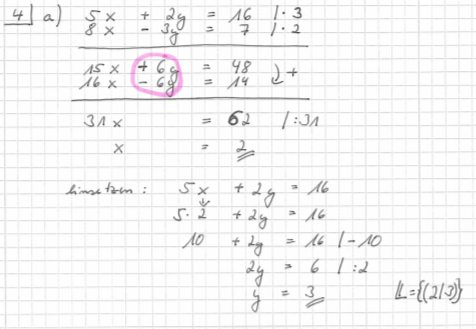 4 a) 5x + 2y = 16 | · 3
8x - 3y = 7 | · 2
15x + 6y = 48
16x - 6y = 14 +
31x = 62 | :31
x = 2
Einsetzen: 5x + 2y = 16
5 · 2 + 2y = 16
10 + 2y = 16 | - 10
2y = 6 | :2
y = 3 L={(2|3)}